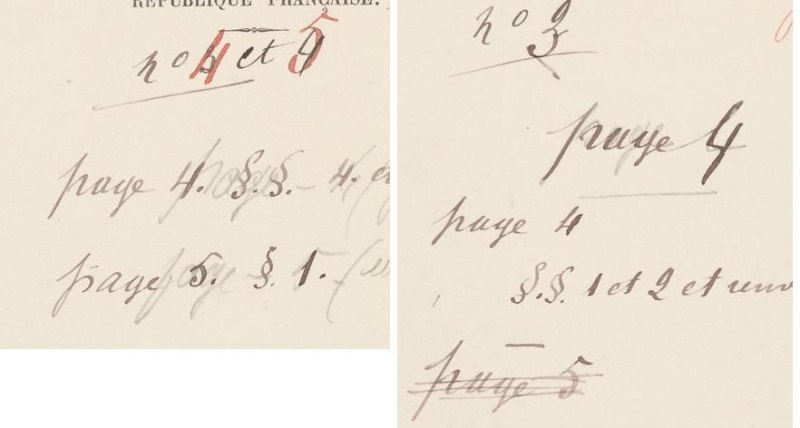 RÉPUBLIQUE FRANÇAISE.
nº 4 et 5
page 4. §.§. 4.
page 5. § 1.
nº 3
page 4
page 4
§.§. 1 et 2 et
page 5